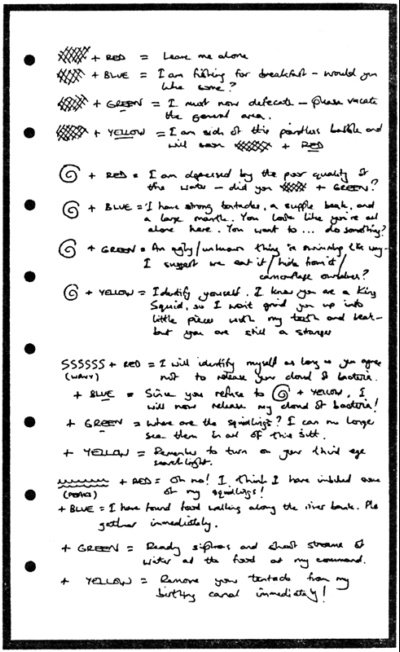 + RED = Leave me alone
+ BLUE = I am fishing for breakfast - would you
like some?
+ GREEN = I must now defecate - please vacate
the general area.
+ YELLOW = I am sick of this pointless babble and
will soon + RED
+ RED = I am depressed by the poor quality of
this water - did you + GREEN?
+ BLUE = I have strong tentacles, a supple beak, and
a large mantle. You look like you're all
alone here. You want to ... do something?
+ GREEN = An ugly/unknown thing is swimming this way -
I suggest we eat it/hide from it/
camouflage ourselves?
+ YELLOW = Identify yourself. I know you are a King
Squid, so I won't grind you up into
little pieces with my teeth and beak -
but you are still a stranger
SSSSSS + RED = I will identify myself as long as you agree
(WAVY) not to release your cloud of bacteria.
+ BLUE = Since you refuse to + YELLOW, I
will now release my cloud of bacteria!
+ GREEN = Where are the squidlings? I can no longer
see them in all of this silt.
+ YELLOW = Remember to turn on your third eye
searchlight.
+ RED = Oh no! I think I have inhaled some
of my squidlings!
+ BLUE = I have found food walking along the river bank. Pls
gather immediately.
+ GREEN = Ready siphons and shoot streams of
water at the food at my command.
+ YELLOW = Remove your tentacle from my
birthing canal immediately!